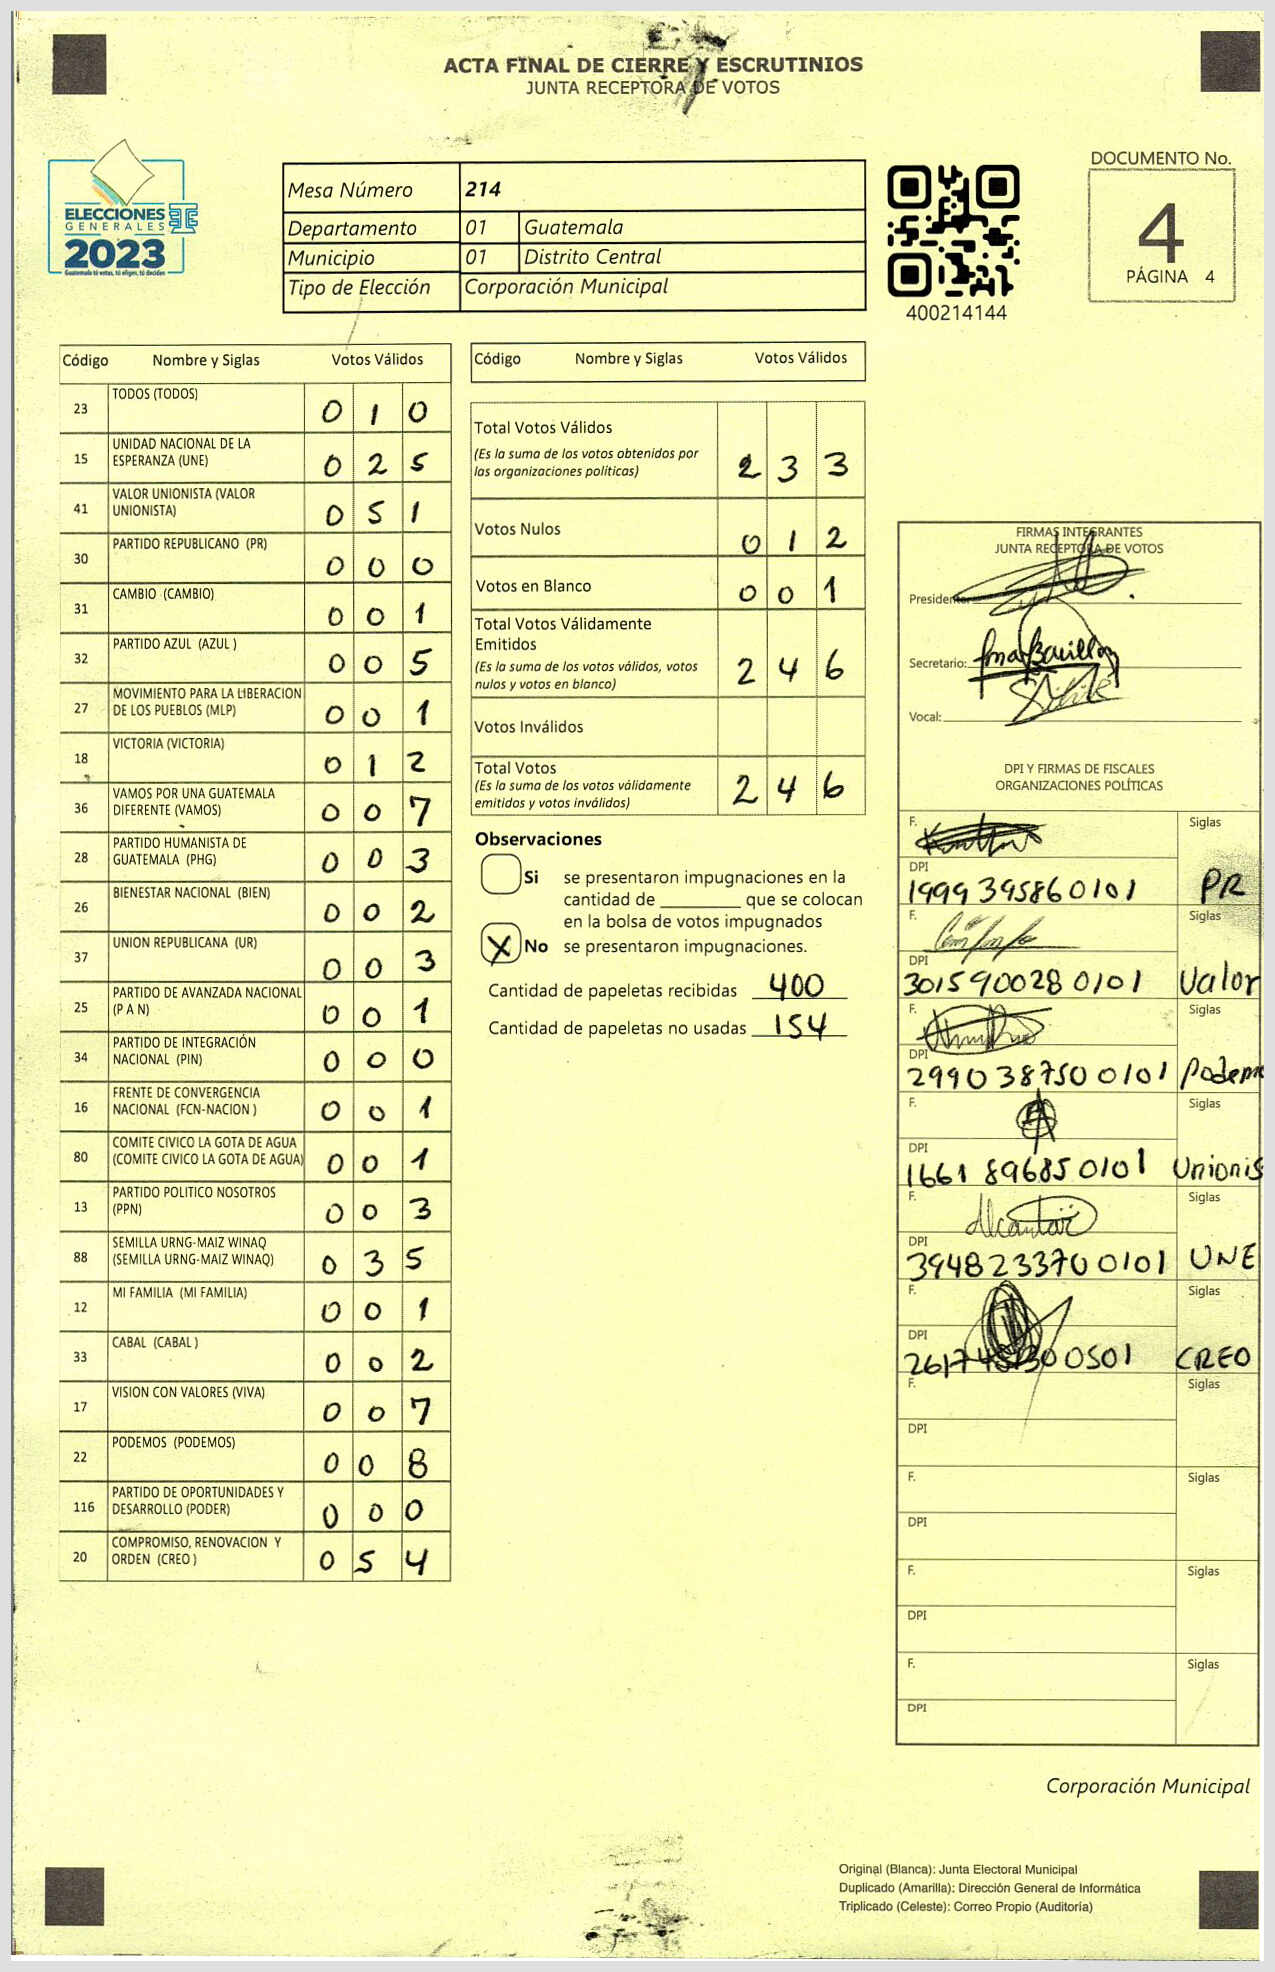 ACTA FINAL DE CIERRE Y ESCRUTINIOS
JUNTA RECEPTORA DE VOTOS
ELECCIONES
GENERALES
2023
Guatemala tú votas, tú eliges, tú decides
Mesa Número 214
Departamento 01 Guatemala
Municipio 01 Distrito Central
Tipo de Elección Corporación Municipal
400214144
DOCUMENTO No.
4
PÁGINA 4
Código Nombre y Siglas Votos Válidos
23 TODOS (TODOS) 0 1 0
15 UNIDAD NACIONAL DE LA
ESPERANZA (UNE) 0 2 5
41 VALOR UNIONISTA (VALOR
UNIONISTA) 0 5 1
30 PARTIDO REPUBLICANO (PR) 0 0 0
31 CAMBIO (CAMBIO) 0 0 1
32 PARTIDO AZUL (AZUL ) 0 0 5
27 MOVIMIENTO PARA LA LIBERACION
DE LOS PUEBLOS (MLP) 0 0 1
18 VICTORIA (VICTORIA) 0 1 2
36 VAMOS POR UNA GUATEMALA
DIFERENTE (VAMOS) 0 0 7
28 PARTIDO HUMANISTA DE
GUATEMALA (PHG) 0 0 3
26 BIENESTAR NACIONAL (BIEN) 0 0 2
37 UNION REPUBLICANA (UR) 0 0 3
25 PARTIDO DE AVANZADA NACIONAL
(P A N) 0 0 1
34 PARTIDO DE INTEGRACIÓN
NACIONAL (PIN) 0 0 0
16 FRENTE DE CONVERGENCIA
NACIONAL (FCN-NACION ) 0 0 1
80 COMITE CIVICO LA GOTA DE AGUA
(COMITE CIVICO LA GOTA DE AGUA) 0 0 1
13 PARTIDO POLITICO NOSOTROS
(PPN) 0 0 3
88 SEMILLA URNG-MAIZ WINAQ
(SEMILLA URNG-MAIZ WINAQ) 0 3 5
12 MI FAMILIA (MI FAMILIA) 0 0 1
33 CABAL (CABAL ) 0 0 2
17 VISION CON VALORES (VIVA) 0 0 7
22 PODEMOS (PODEMOS) 0 0 8
116 PARTIDO DE OPORTUNIDADES Y
DESARROLLO (PODER) 0 0 0
20 COMPROMISO, RENOVACION Y
ORDEN (CREO ) 0 5 4
Código Nombre y Siglas Votos Válidos
Total Votos Válidos
(Es la suma de los votos obtenidos por
las organizaciones políticas) 2 3 3
Votos Nulos 0 1 2
Votos en Blanco 0 0 1
Total Votos Válidamente
Emitidos
(Es la suma de los votos válidos, votos
nulos y votos en blanco) 2 4 6
Votos Inválidos
Total Votos
(Es la suma de los votos válidamente
emitidos y votos inválidos) 2 4 6
Observaciones
Si se presentaron impugnaciones en la
cantidad de ________ que se colocan
en la bolsa de votos impugnados
X No se presentaron impugnaciones.
Cantidad de papeletas recibidas 400
Cantidad de papeletas no usadas 154
FIRMAS INTEGRANTES
JUNTA RECEPTORA DE VOTOS
Presidente:
Secretario:
Vocal:
DPI Y FIRMAS DE FISCALES
ORGANIZACIONES POLÍTICAS
F. Siglas
DPI
1999 39586 0101 PR
F. Siglas
DPI
3015 90028 0101 Valor
F. Siglas
DPI
2990 38750 0101 Podem
F. Siglas
DPI
1661 89685 0101 Unionis
F. Siglas
DPI
3948 23370 0101 UNE
F. Siglas
DPI
0501 CREO
F. Siglas
DPI
F. Siglas
DPI
F. Siglas
DPI
F. Siglas
DPI
Corporación Municipal
Original (Blanca): Junta Electoral Municipal
Duplicado (Amarilla): Dirección General de Informática
Triplicado (Celeste): Correo Propio (Auditoría)